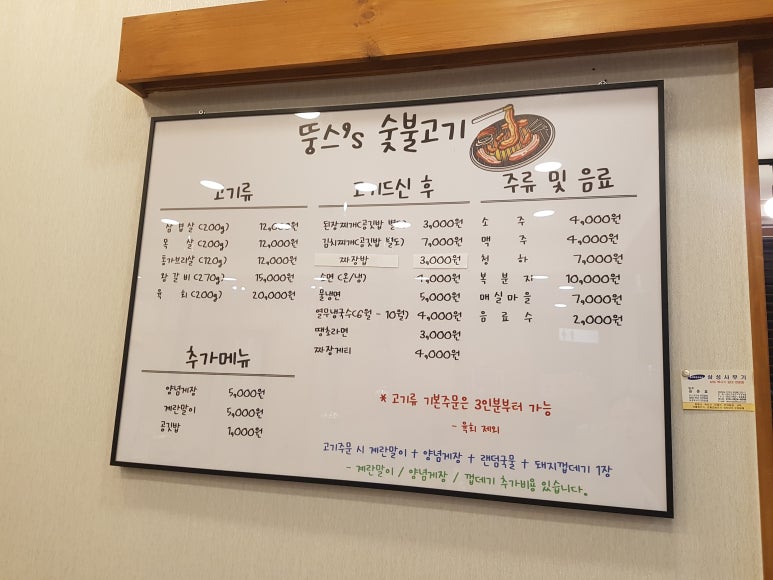 뚱스's 숯불고기
고기류
삼겹살 (200g) 12,000원
목 살 (200g) 12,000원
통가브리살 (120g) 12,000원
왕갈비 (270g) 15,000원
육 회 (200g) 20,000원
추가메뉴
양념게장 5,000원
계란말이 5,000원
공깃밥 1,000원
고기드신 후
된장찌개(공깃밥 별도) 3,000원
김치찌개(공깃밥 별도) 7,000원
짜장밥 3,000원
소면 (온/냉) 4,000원
물냉면 5,000원
열무냉국수(6월 - 10월) 4,000원
땡초라면 3,000원
짜장게티 4,000원
주류 및 음료
소 주 4,000원
맥 주 4,000원
청 하 7,000원
복 분 자 10,000원
매실마을 7,000원
음 료 수 2,000원
* 고기류 기본주문은 3인분부터 가능
- 육회 제외
고기주문 시 계란말이 + 양념게장 + 랜덤국물 + 돼지껍데기 1장
- 계란말이 / 양념게장 / 껍데기 추가비용 있습니다.
삼성사무기